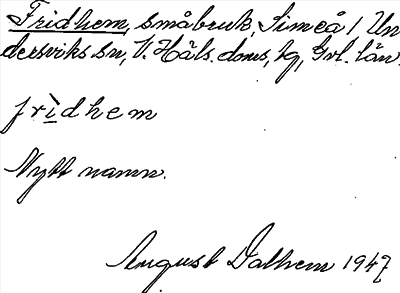 Fridhem, småbruk, Simeå / Un
dersviks sn, V. Häls. doms, hg, Gvl. län.
frìdhem
Nytt namn.
August Dalhem 1947